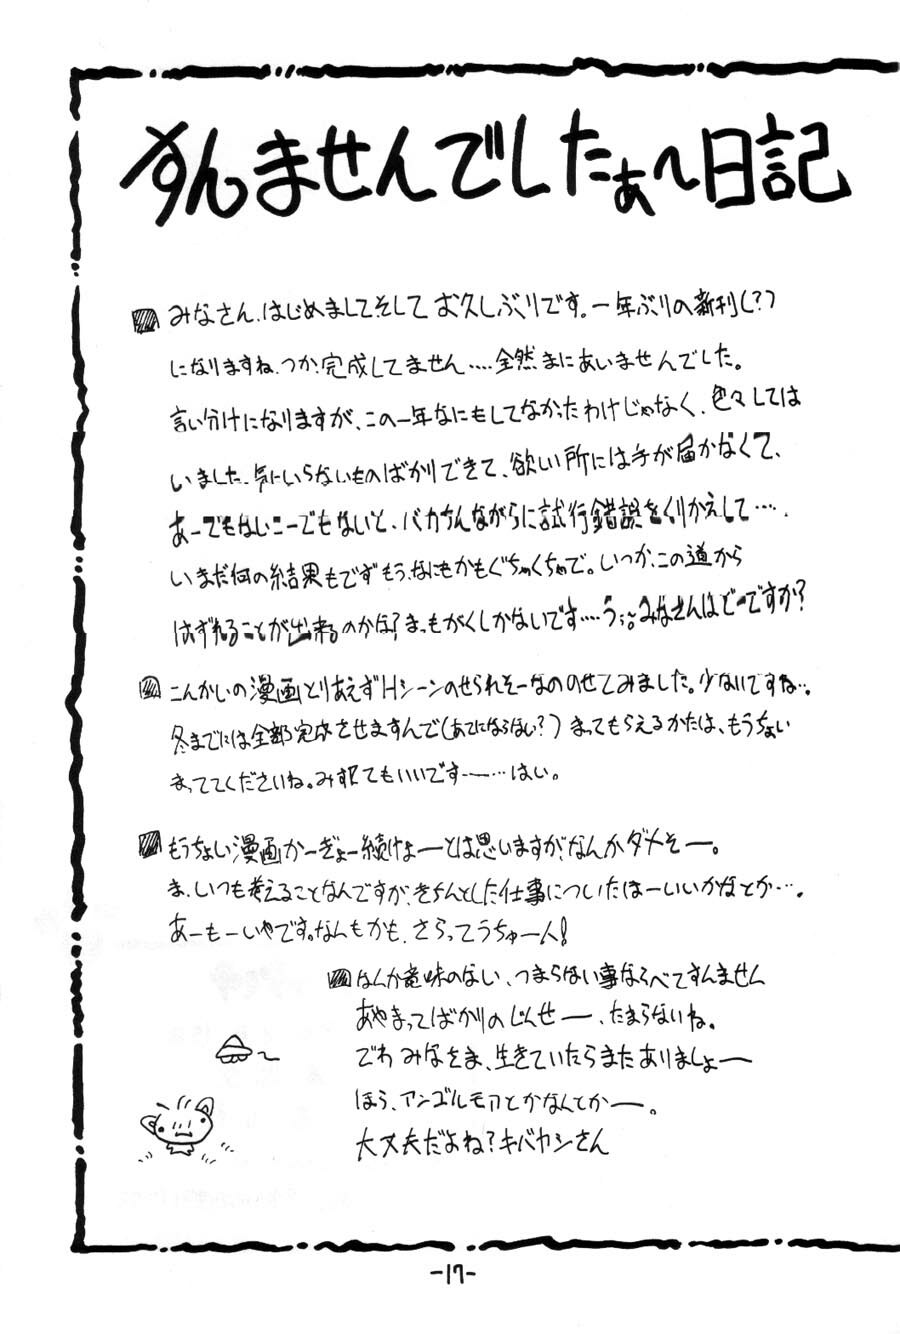 すんませんでしたぁ～日記
みなさん、はじめまして、そして お久しぶりです。一年ぶりの新刊(?)
になりますね、つか、完成してません‥‥全然まにあいませんでした。
言い分けになりますが、この一年なにもしてなかったわけじゃなく、色々しては
いました、気にいらないものばかりできて、欲しい所には手が届かなくて、
あーでもないこーでもないと、バカちんながらに試行錯誤をくりかえして‥‥、
いまだ何の結果もでず もう、なにもかもぐちゃくちゃで。いつか、この道から
はずれることが出来るのかな？まっ、もがくしかないです‥‥う;;みなさんはどーですか？
こんかいの漫画とりあえずHシーンのせられそーなののせてみました。少ないですね‥。
冬までには全部完成させますんで(あてにならない？) まってもらえるかたは、もうちょい
まっててくださいね。み捨てもいいですー‥‥はい。
もうちょい漫画かーぎょー続けょーとは思いますが、なんかダメそー。
ま、いつも考えることなんですが、きちんとした仕事についたほーいいかなとか‥‥。
あーもーいやです。なんもかも、さらってうちゅー人！
なんか意味のない、つまらない事ならべてすんません
あやまってばかりのじんせー、たまらないね。
でわ みなさま、生きていたらまたありましょー
ほら、アンゴルモアとかなんとかー。
大丈夫だよね？キバヤシさん
-17-